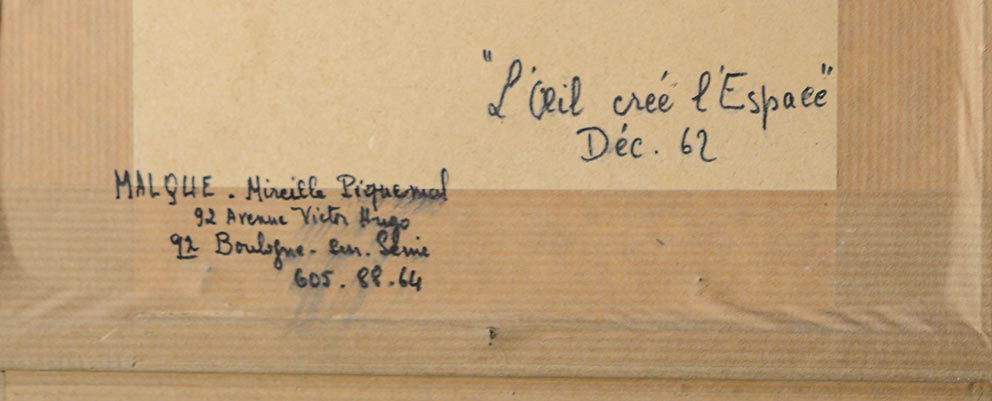 "L'Œil créé l'Espace"
Déc. 62
MALQUE. Mireille Piquemal
92 Avenue Victor Hugo
92 Boulogne-sur-Seine
605.88.64